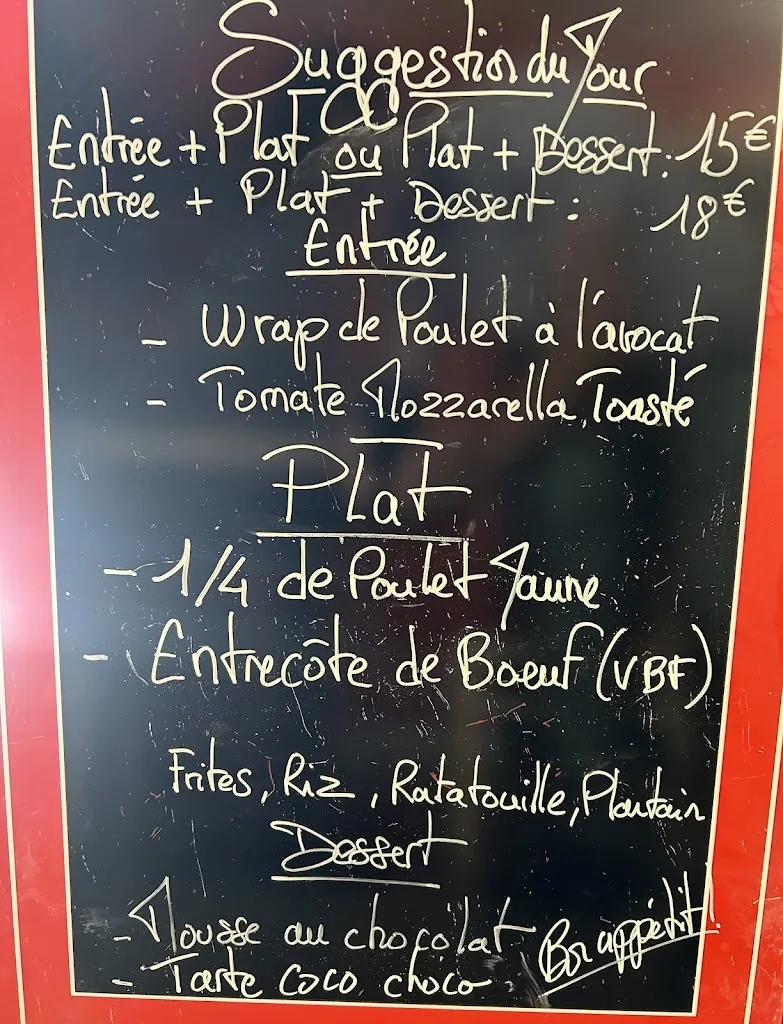 Suggestion du Jour
Entrée + Plat ou Plat + Dessert : 15€
Entrée + Plat + Dessert : 18€
Entrée
- Wrap de Poulet à l'avocat
- Tomate Mozzarella, Toasté
Plat
- 1/4 de Poulet Jaune
- Entrecôte de Boeuf (VBF)
Frites, Riz, Ratatouille, Plantain
Dessert
- Mousse au chocolat
- Tarte coco choco
Bon appétit!